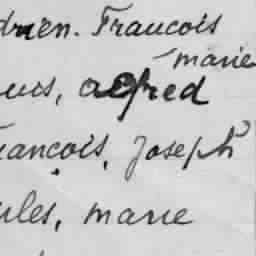 drien. Francois
marie
uis, alfred
rançois, Joseph
ules, marie